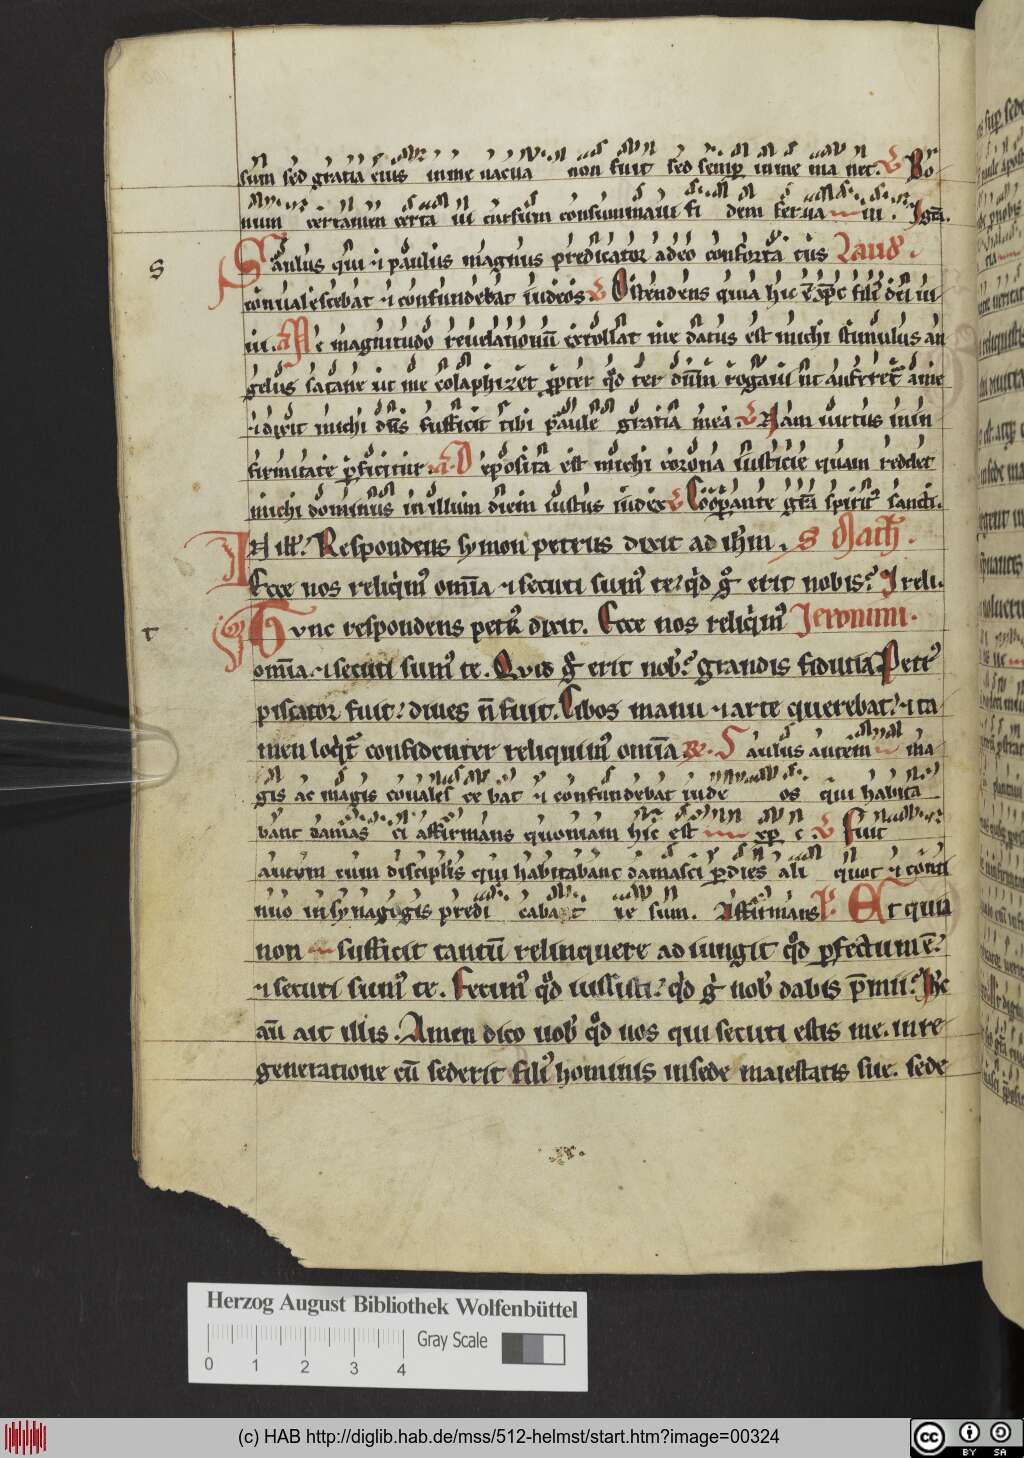 sum sed gratia eius in me vacua non fuit sed semp in me ma net. V Bo
num certamen certa ui cursum consummaui fi dem serua ui. Igra.
S Saulus qui ⁊ paulus magnus predicator adeo conforta tus Laud.
conualescebat ⁊ confundebat iudeos V Ostendens quia hic ē xp̄c fili' dei ui
ui. A Ne magnitudo reuelationū extollat me datus est michi stimulus an
gelus satane ut me colaphizet propter qd ter dūm rogaui ut auferret a me
⁊ dixit michi dn̄s sufficit tibi paule gratia mea V Nam uirtus in in
firmitate perficitur. A Deposita est michi corona iusticie quam reddet
michi dominus in illum diem iustus iudex V Cooperante gra spirit' sancti.
IN ill'. Respondens symon petrus dixit ad ihm. S Math.
Ecce nos reliqim' omīa ⁊ secuti sum' te. qd g erit nobis? I reli.
t Tunc respondens petr' dixit. Ecce nos reliqim' Jeronimi.
omīa. ⁊ secuti sum' te. Quid g erit nob'? grandis fiducia Petr'
piscator fuit. diues n̄ fuit. Cibos manu ⁊ arte querebat. ⁊ ta
men loqt' confidenter reliquim' omīa R. Saulus autem ma
gis ac magis conuales ce bat ⁊ confundebat iude os qui habita
bant damas ci affirmans quoniam hic est xp c V Fuit
autem cum discipulis qui habitabant damasci p dies ali quot ⁊ conti
nuo in synagogis predi cabat ie sum. Affirmans P. Et quia
non sufficit tantū relinquere ad iungit qd perfectum ē.
⁊ secuti sum' te. Fecim' qd iussisti. qd g nob' dabis p̄mii. Ihc
aū ait illis. Amen dico uob' qd uos qui secuti estis me. in re
generatione cū sederit fili' hominis in sede maiestatis sue. sede
Herzog August Bibliothek Wolfenbüttel
Gray Scale
0 1 2 3 4
(c) HAB http://diglib.hab.de/mss/512-helmst/start.htm?image=00324
cc BY SA